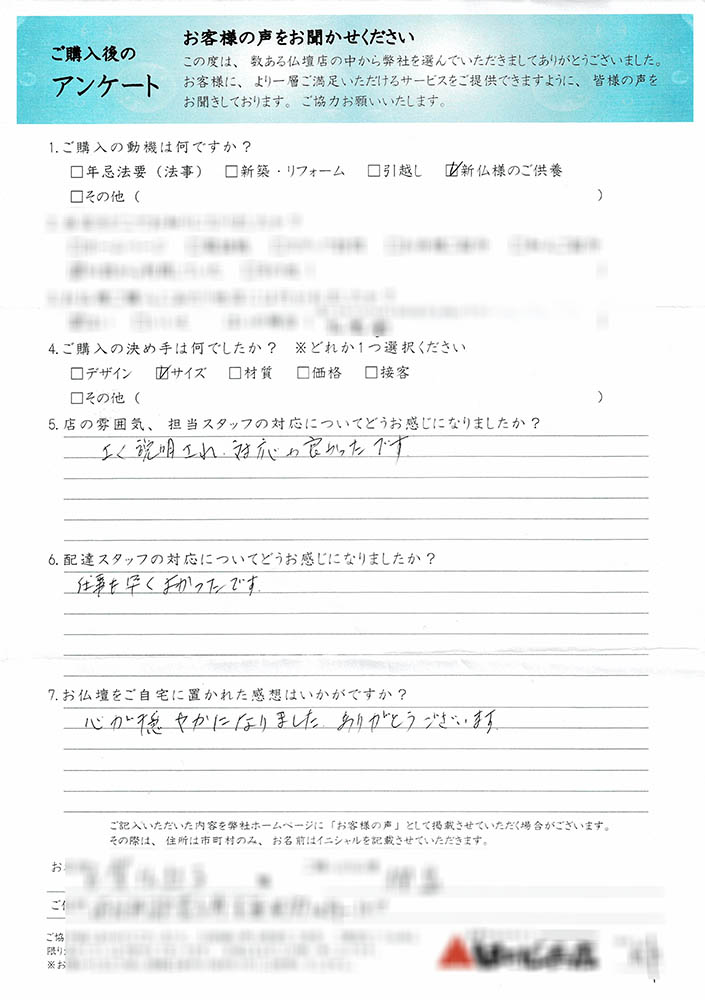 ご購入後の
アンケート
お客様の声をお聞かせください
この度は、数ある仏壇店の中から弊社を選んでいただきましてありがとうございました。
お客様に、より一層ご満足いただけるサービスをご提供できますように、皆様の声を
お聞きしております。ご協力お願いいたします。
1.ご購入の動機は何ですか？
□年忌法要（法事） □新築・リフォーム □引越し ☑新仏様のご供養
□その他（ ）
4.ご購入の決め手は何でしたか？ ※どれか1つ選択ください
□デザイン ☑サイズ □材質 □価格 □接客
□その他（ ）
5.店の雰囲気、担当スタッフの対応についてどうお感じになりましたか？
よく説明され、対応も良かったです
6.配達スタッフの対応についてどうお感じになりましたか？
仕事も早くよかったです.
7.お仏壇をご自宅に置かれた感想はいかがですか？
心が穏やかになりました. ありがとうございます.
ご記入いただいた内容を弊社ホームページに「お客様の声」として掲載させていただく場合がございます。
その際は、住所は市町村のみ、お名前はイニシャルを記載させていただきます。
お
ご
ご協
限り
※お